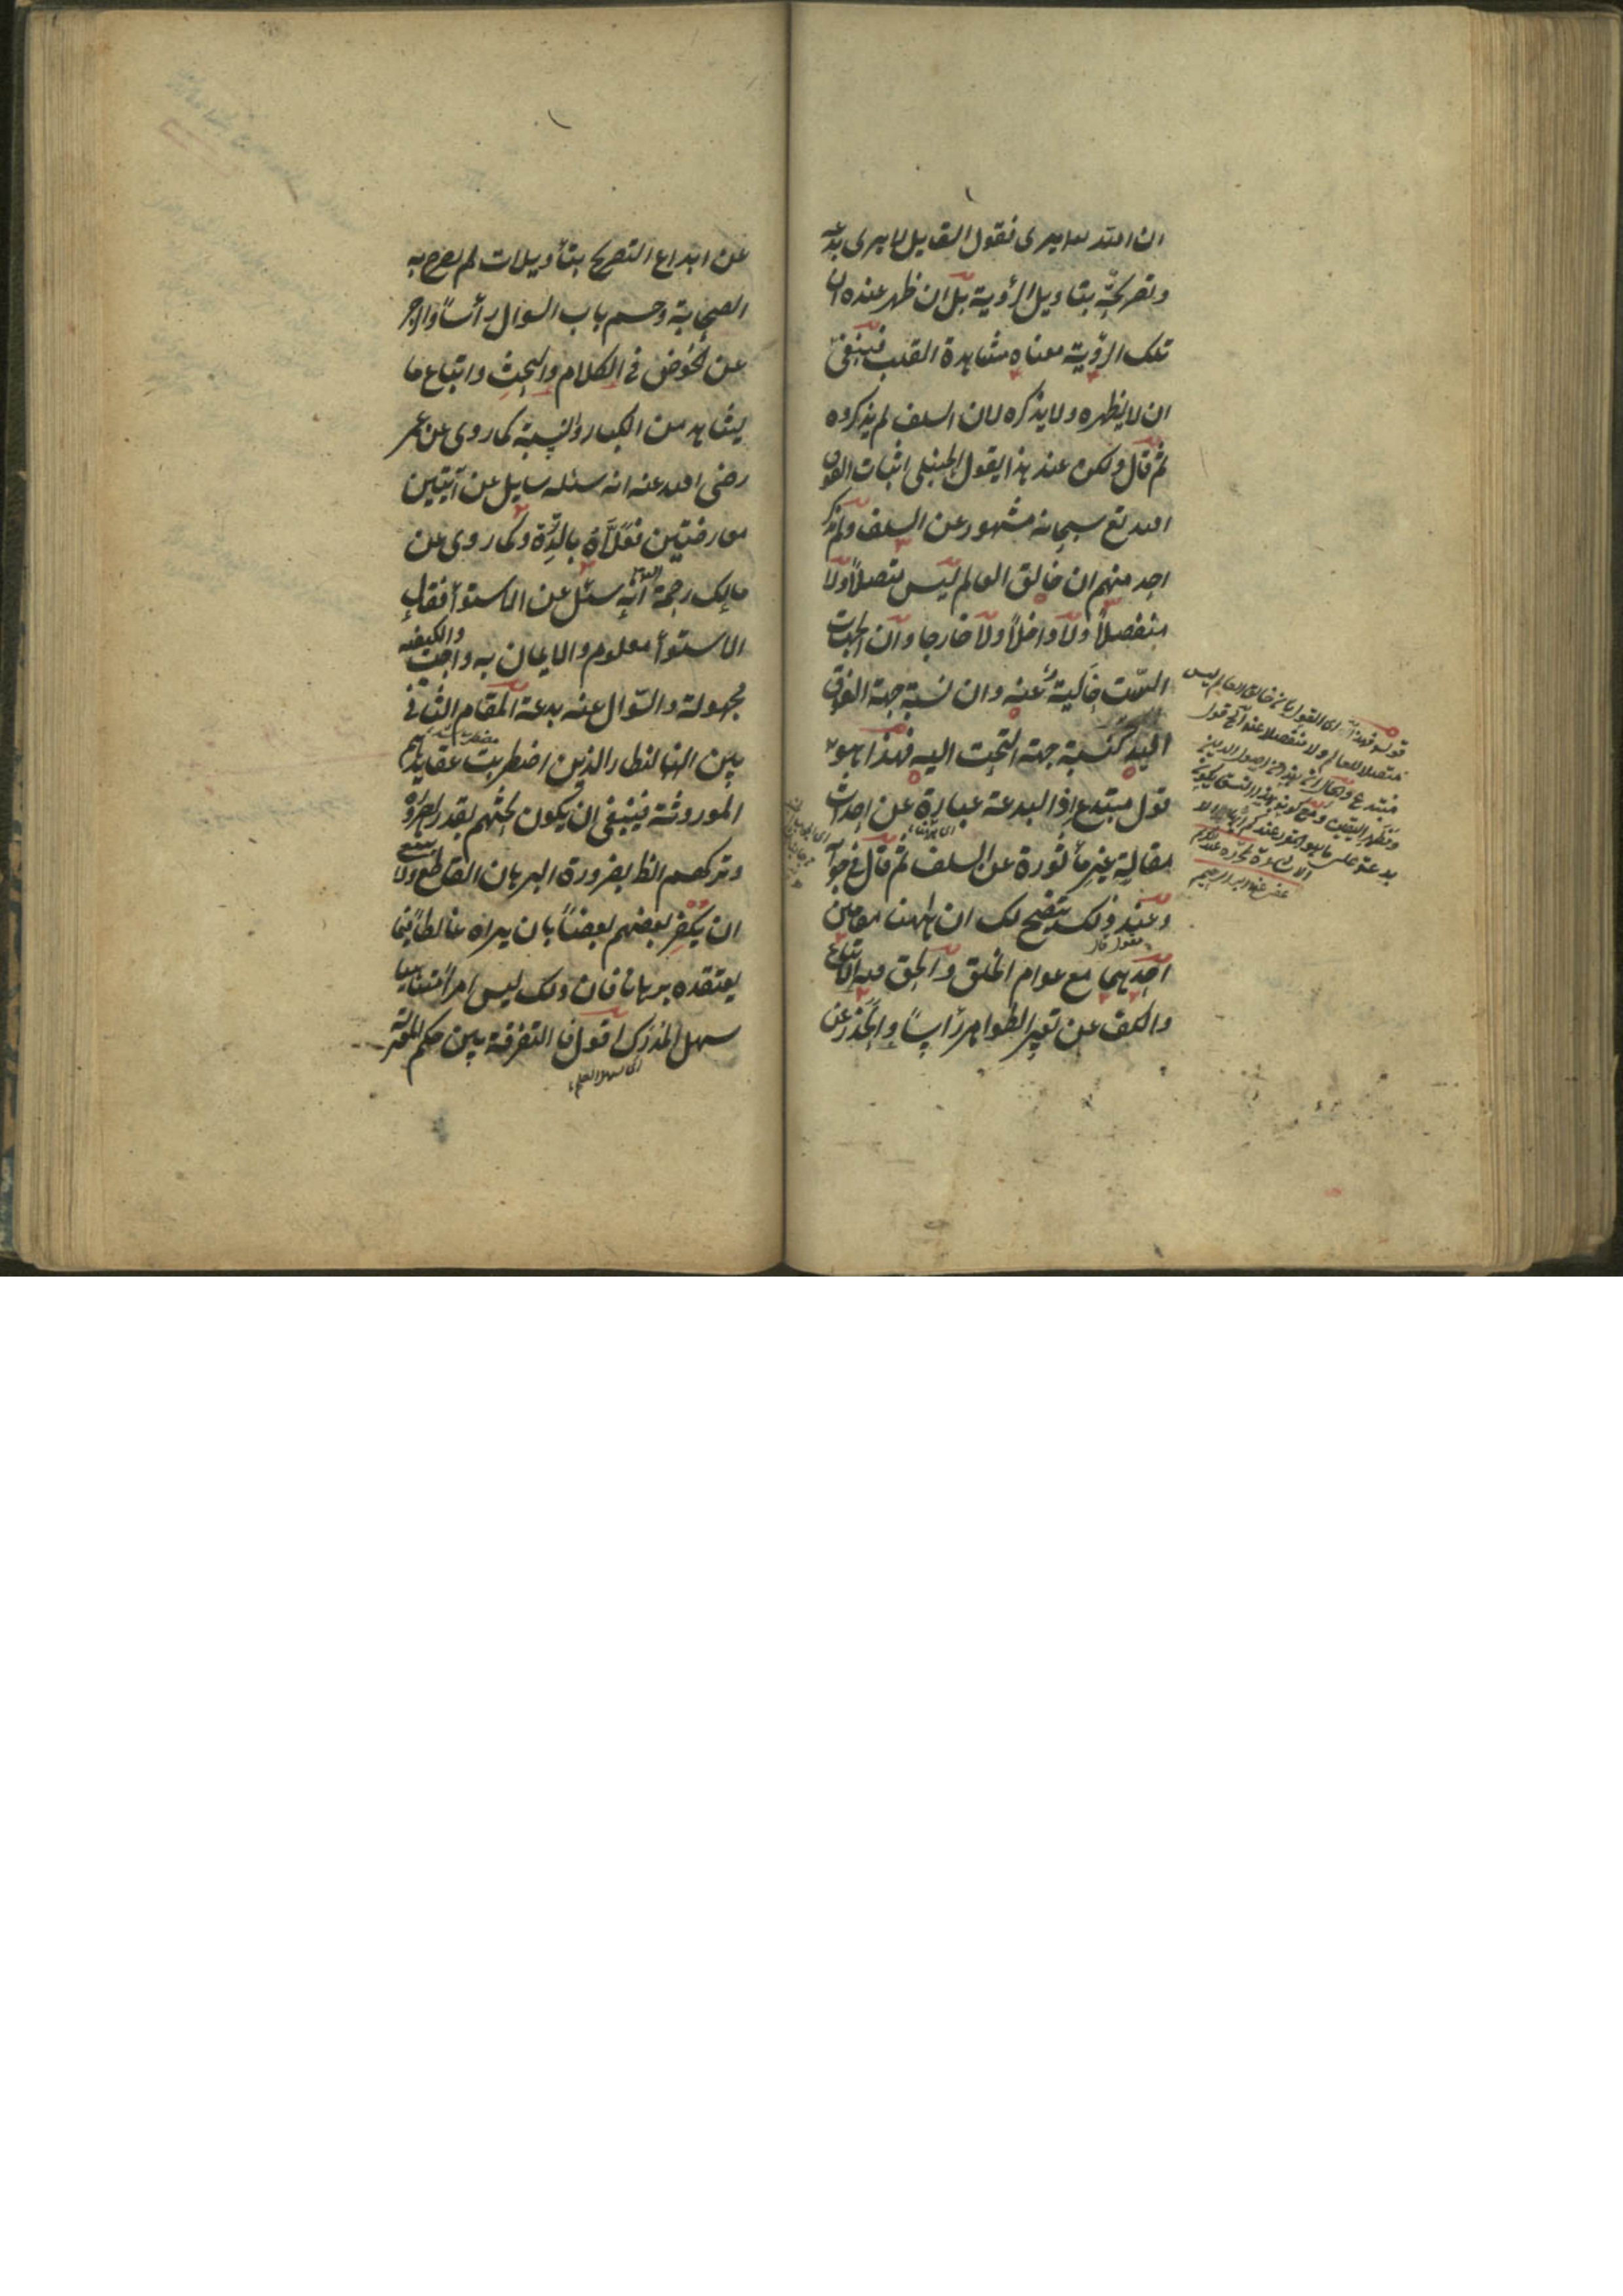 ان الله لا يرى فقول القايل لا يرى بدعة
وتصريحه بتاويل الرؤية بل ان ظهر عنده ان
تلك الرؤية معناه مشاهدة القلب فينبغى
ان لا يظهره ولا يذكره لان السلف لم يذكروه
ثم قال ولكن عند هذا يقول الحنبلى اثبات الفوق
لله تع سبحانه مشهور عن السلف ولم يذكر
احد منهم ان خالق العالم ليس متصلاً ولا
منفصلاً ولا داخلاً ولا خارجا وان الجهات
الست خالية عنه وان نسبة جهة الفوق
اليه كنسبة جهة التحت اليه فهذا هو
قول مبتدع اذ البدعة عبارة عن احداث
مقالة غير مأثورة عن السلف ثم قال فى جوابه
وعند ذلك يتضح لك ان ههنا مقامين
احدهما مع عوام الخلق والحق فيه الاتباع
والكف عن تغيير الظواهر رأساً والحذر عن
قوله فهذا اى القول بان خالق العالم ليس
متصلا للعالم ولا منفصلا عنه قول
مبتدع
عن ابداع التصريح بتأويلات لم يصرح به
الصحابة وحسم باب السوال رأساً والزجر
عن الخوض فى الكلام والبحث واتباع ما
يتشابه من الكتاب والسنة كما روى عن عمر
رضى الله عنه انه سئله سايل عن آيتين
معارضتين فعلاه بالدرة وكما روى عن
مالك رحمه الله انه سئل عن الاستوأ فقال
الاستوأ معلوم والايمان به واجب والكيفية
مجهولة والسؤال عنه بدعة المقام الثانى
بين النظار الذين اضطربت عقايدهم
الموروثة فينبغى ان يكون بحثهم بقدر الضرورة
وتركهم الظ بضرورة البرهان القاطع ولا ينبغى
ان يكفر بعضهم بعضاً بان يراه غالطا فيما
يعتقده برهانا فان ذلك ليس امرا هينا
سهل المدرك اقول فا التفرقة بين حكم
اى سهل العلم